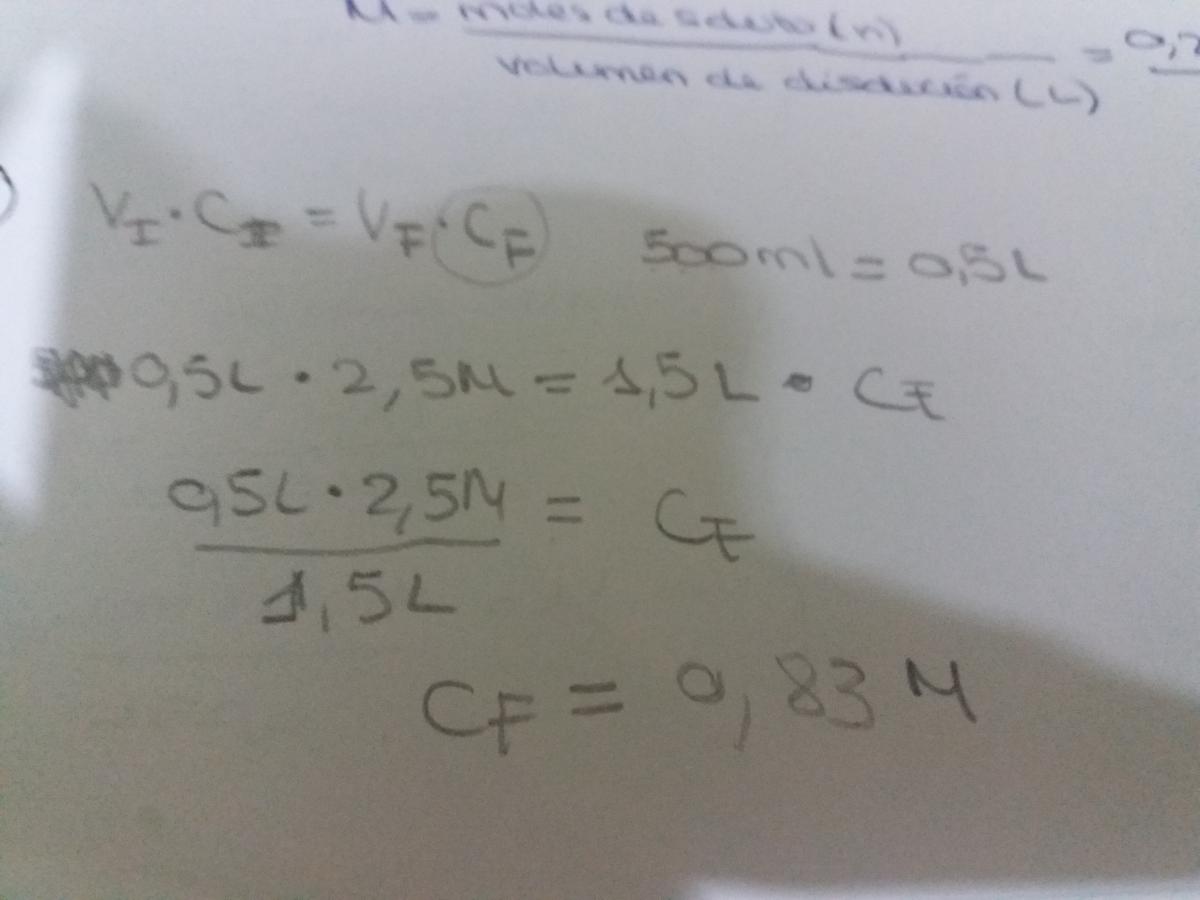 M = moles de soluto (n) = 0,
volumen de disolución (L)
V_I · C_I = V_F · C_F 500ml = 0,5L
0,5L · 2,5M = 1,5L · C_F
0,5L · 2,5M = C_F
1,5L
C_F = 0,83 M